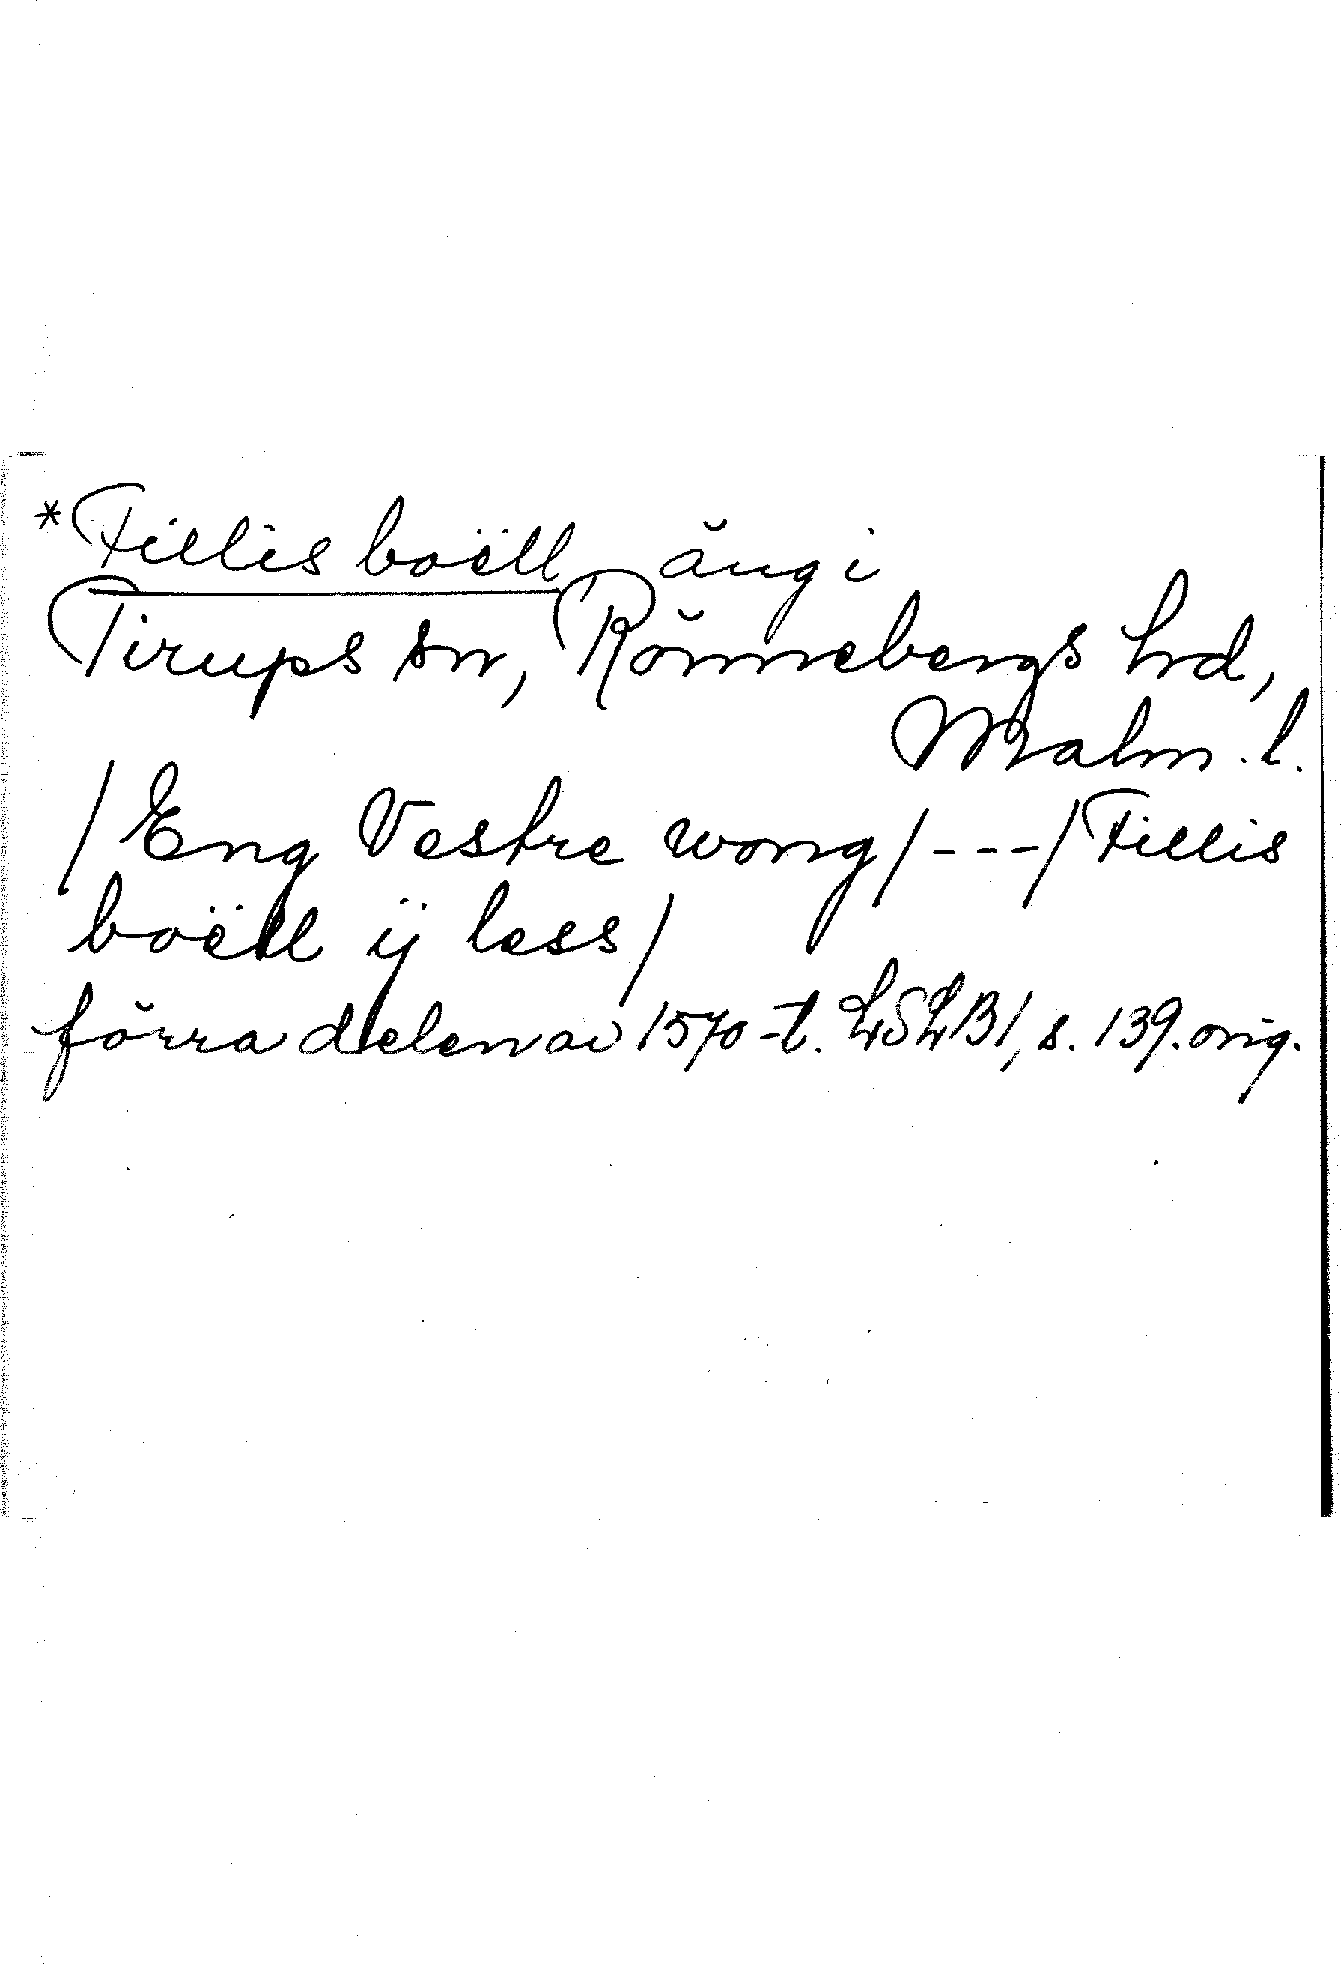 *Fillis boëll, äng i
Tirups sn, Rönnebergs hrd,
Malm. l.
/Eng Vestre wong/---/Fillis
boëll ij less/
förra delen av 1570-t. LSLB1, s. 139. orig.